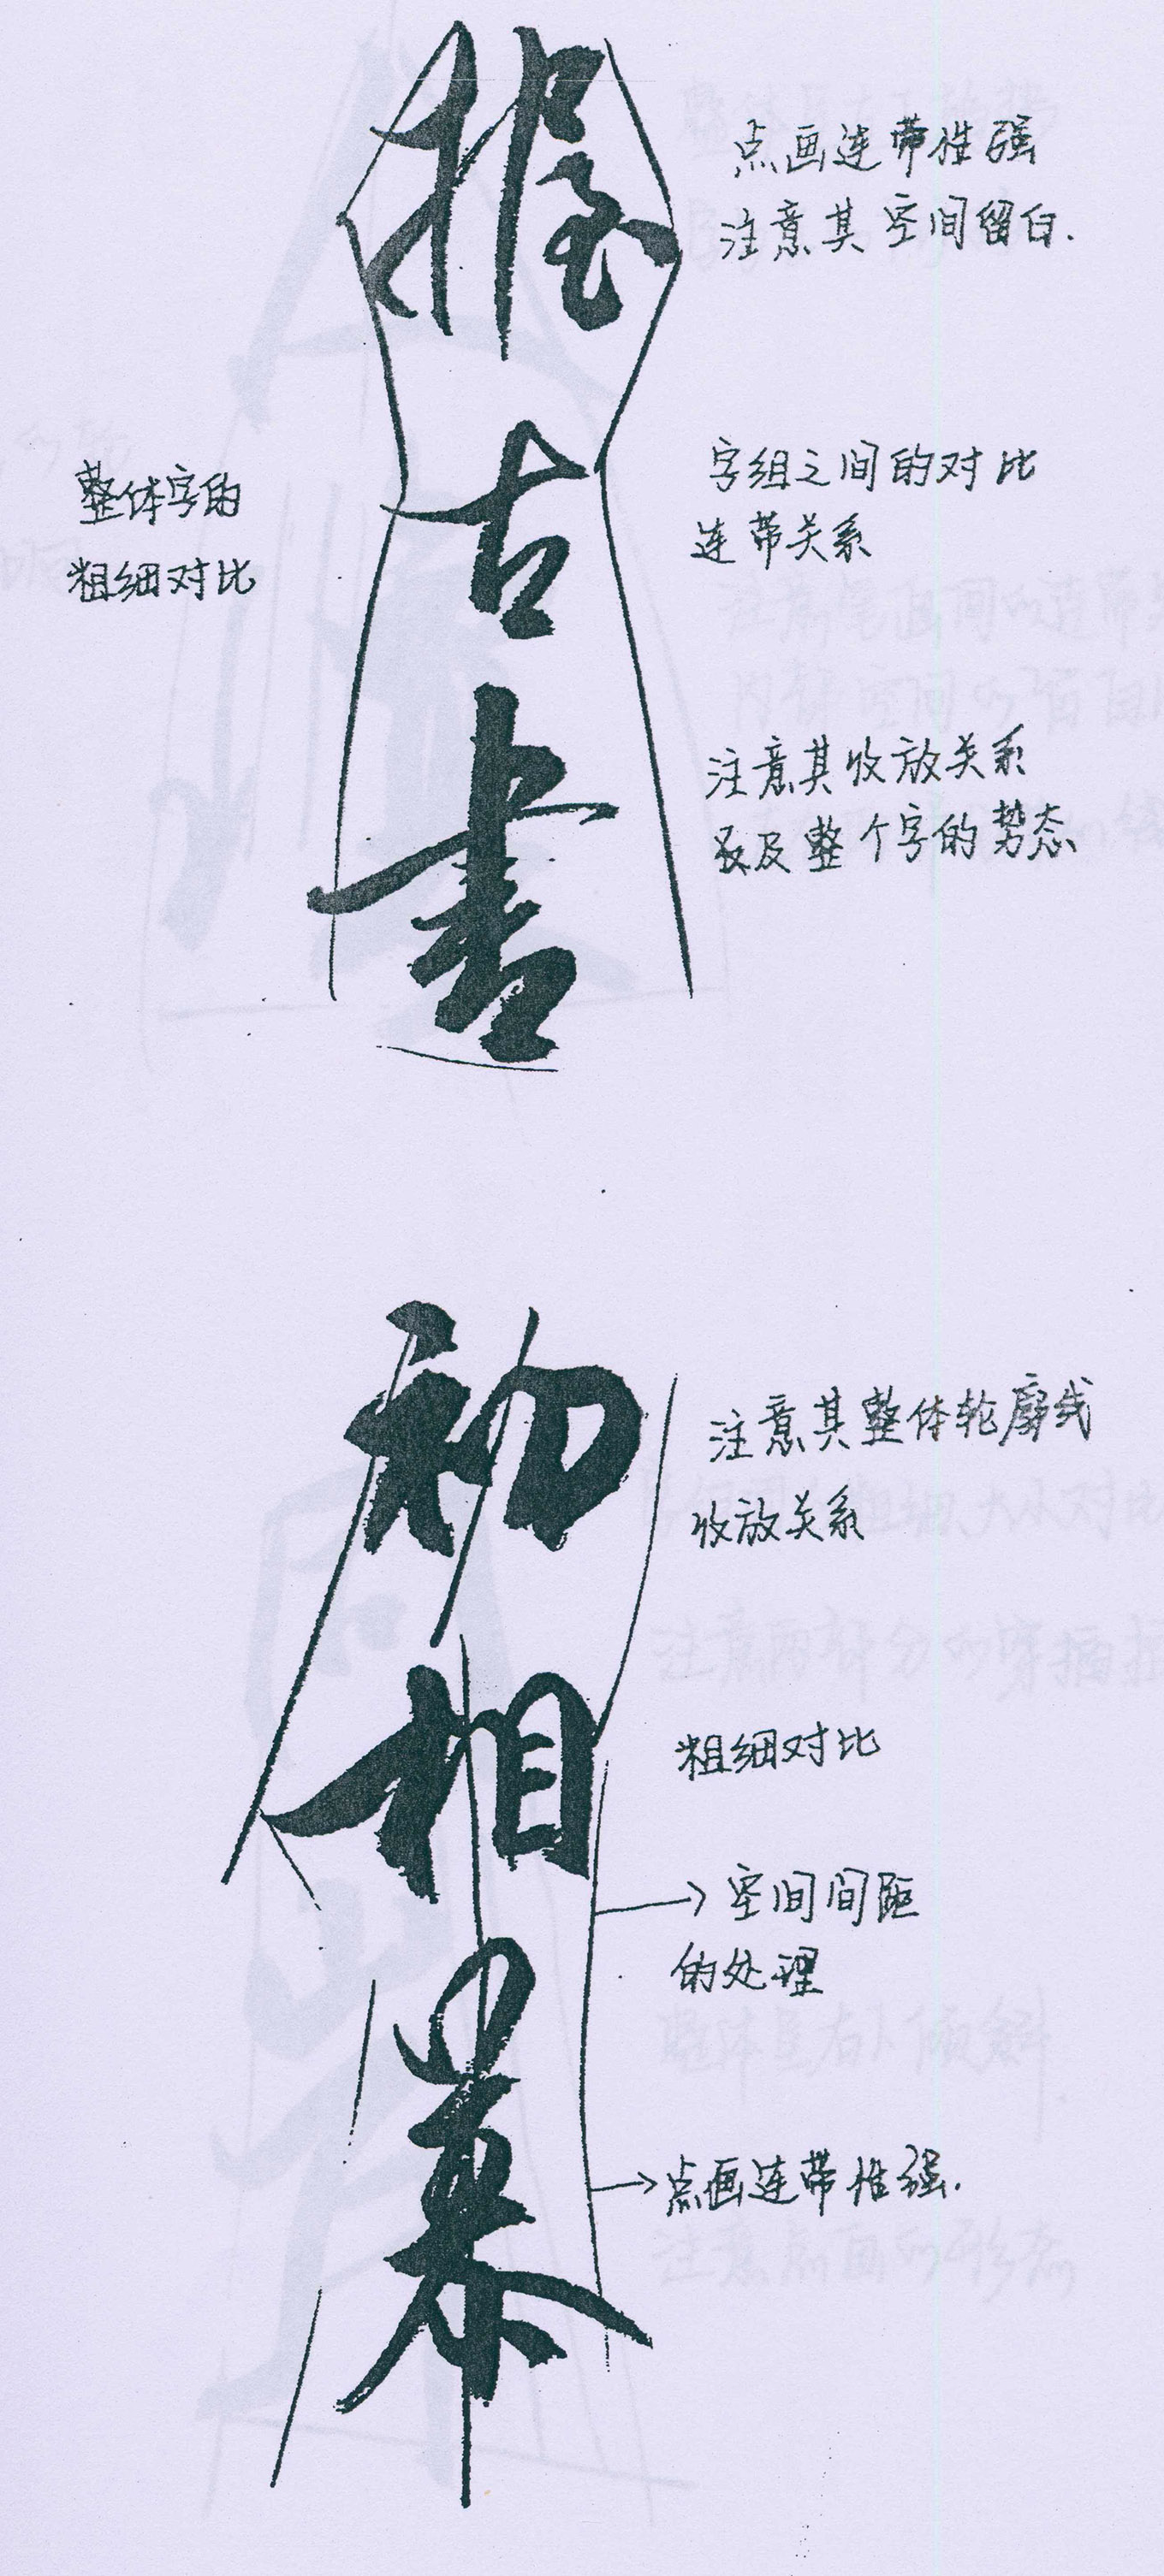 握
点画连带性强
注意其空间留白.
古
整体字的
粗细对比
字组之间的对比
连带关系
書
注意其收放关系
及整个字的势态
初
注意其整体轮廓线
收放关系
相
粗细对比
空间间距
的处理
点画连带性强.